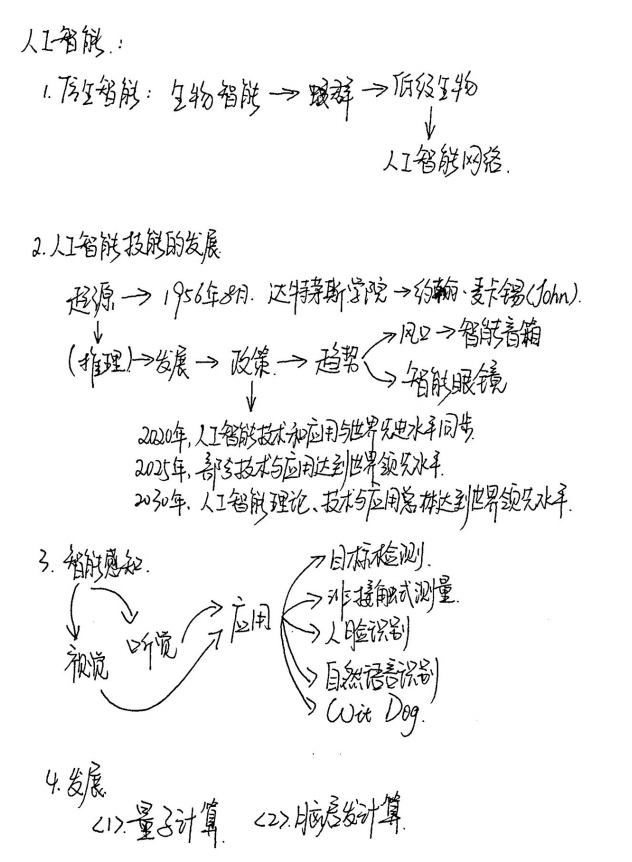 人工智能:
1.仿生智能: 生物智能→蚁群→低级生物
↓
人工智能网络.
2.人工智能技能的发展
起源→1956年8月. 达特茅斯学院→约翰·麦卡锡(John).
↓
(推理)→发展→政策→趋势
→风口→智能音箱
→智能眼镜
↓
2020年,人工智能技术和应用与世界先进水平同步.
2025年,部分技术与应用达到世界领先水平.
2030年.人工智能理论、技术与应用总体达到世界领先水平.
3.智能感知.
视觉 听觉→应用
→目标检测.
→非接触式测量.
→人脸识别
→自然语言识别
→Wit Dog.
4.发展.
<1>.量子计算. <2>.脑启发计算.